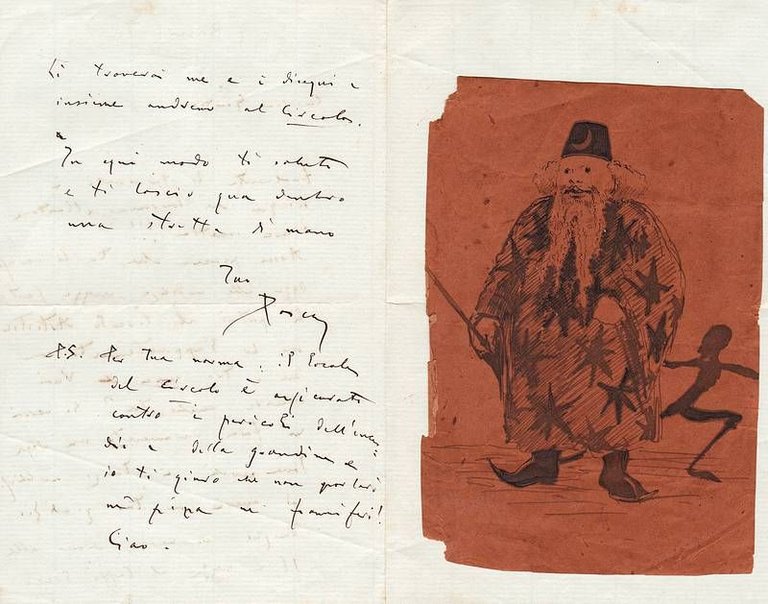 Lì troverai me e i disegni e
insieme andremo al Circolo.
In ogni modo ti saluto
e ti lascio qua dentro
una stretta di mano
Tuo
P.S. Per tua norma: il locale
del circolo è assicurato
contro i pericoli dell'incen-
die e della grandine e
io ti giuro che non porterò
nè pipa nè fiammiferi!
Ciao.